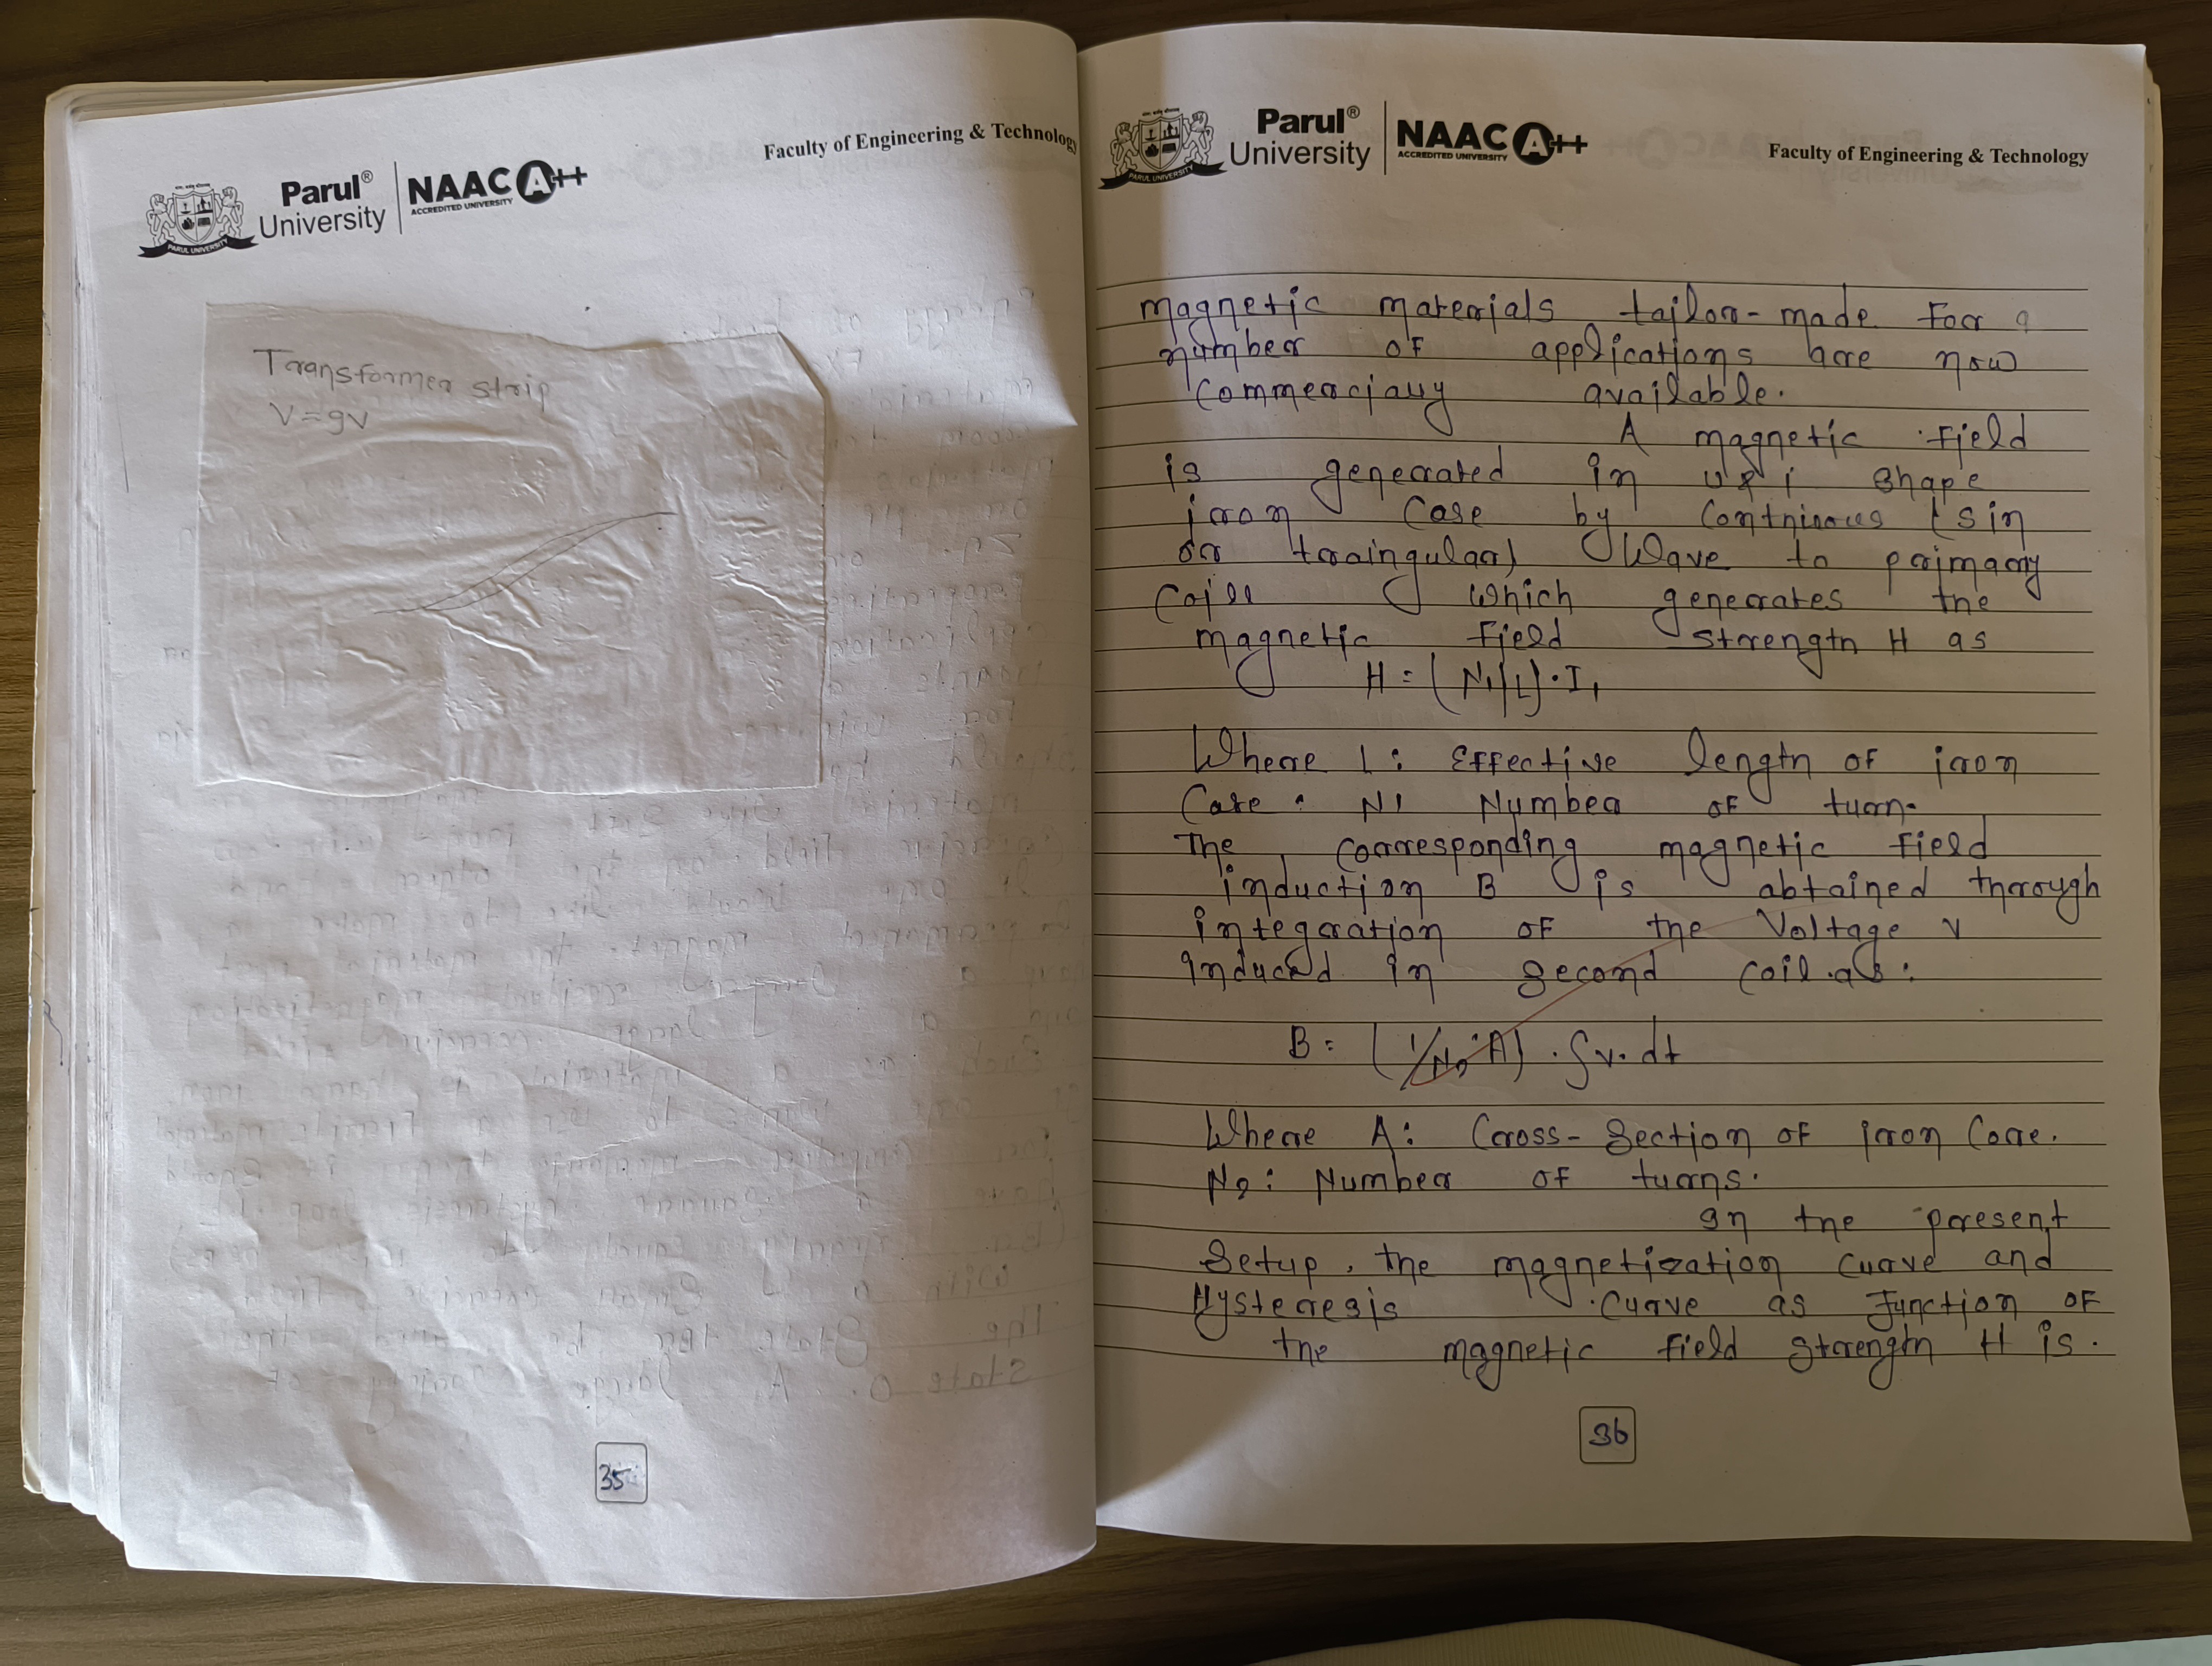 Parul® University
NAAC A++
ACCREDITED UNIVERSITY
PARUL UNIVERSITY
Faculty of Engineering & Technology
Transformer strip
V=9V
35
Parul® University
NAAC A++
ACCREDITED UNIVERSITY
PARUL UNIVERSITY
Faculty of Engineering & Technology
magnetic materials tailor-made for a
number of applications are now
commercially available.
A magnetic field
is generated in u & i shape
iron case by continous (sin
or traingular) wave to primary
coill which generates the
magnetic field strength H as
H = (N1/L)·I1
Where L: Effective length of iron
Core. N1 Number of turn.
The corresponding magnetic field
induction B is obtained through
integration of the voltage v
induced in second coil as:
B = (1/N2·A)·∫v·dt
Where A: Cross-section of iron core.
N2: Number of turns.
In the present
setup, the magnetization curve and
Hysteresis curve as function of
the magnetic field strength H is.
36